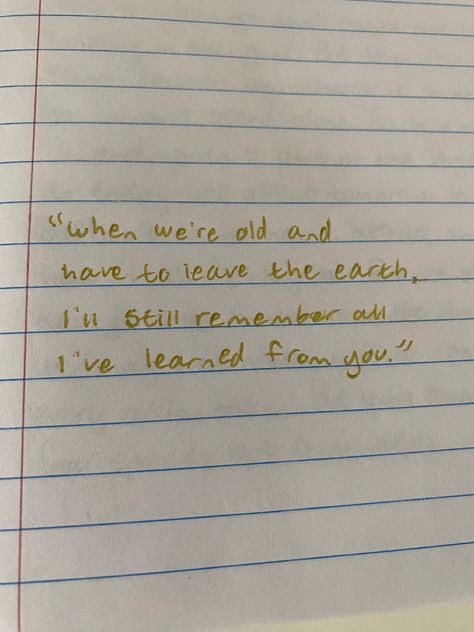 "when we're old and
have to leave the earth,
I'll still remember all
I've learned from you."